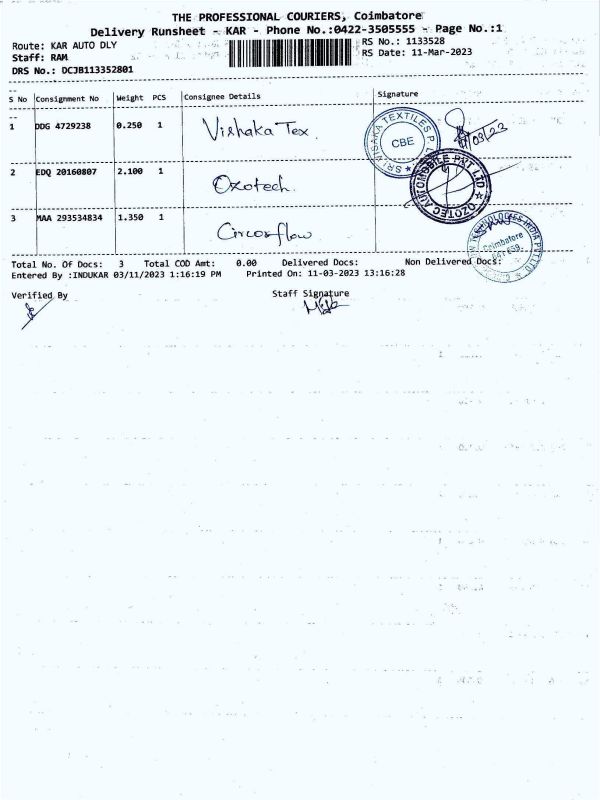 THE PROFESSIONAL COURIERS, Coimbatore
Delivery Runsheet - KAR - Phone No.:0422-3505555 - Page No.:1
Route: KAR AUTO DLY
RS No.: 1133528
Staff: RAM
RS Date: 11-Mar-2023
DRS No.: DCJB113352801
S No Consignment No Weight PCS Consignee Details Signature
1 DDG 4729238 0.250 1 Vishaka Tex.
SRI VISAKA TEXTILES P. L
CBE
2 EDQ 20160807 2.100 1 Ozotech.
OZOTEC AUTOMOBILE PVT LTD
3 MAA 293534834 1.350 1 Circorflow
TECHNOLOGIES INDIA PVT LTD
Coimbatore
Total No. Of Docs: 3 Total COD Amt: 0.00 Delivered Docs: Non Delivered Docs:
Entered By :INDUKAR 03/11/2023 1:16:19 PM Printed On: 11-03-2023 13:16:28
Verified By Staff Signature